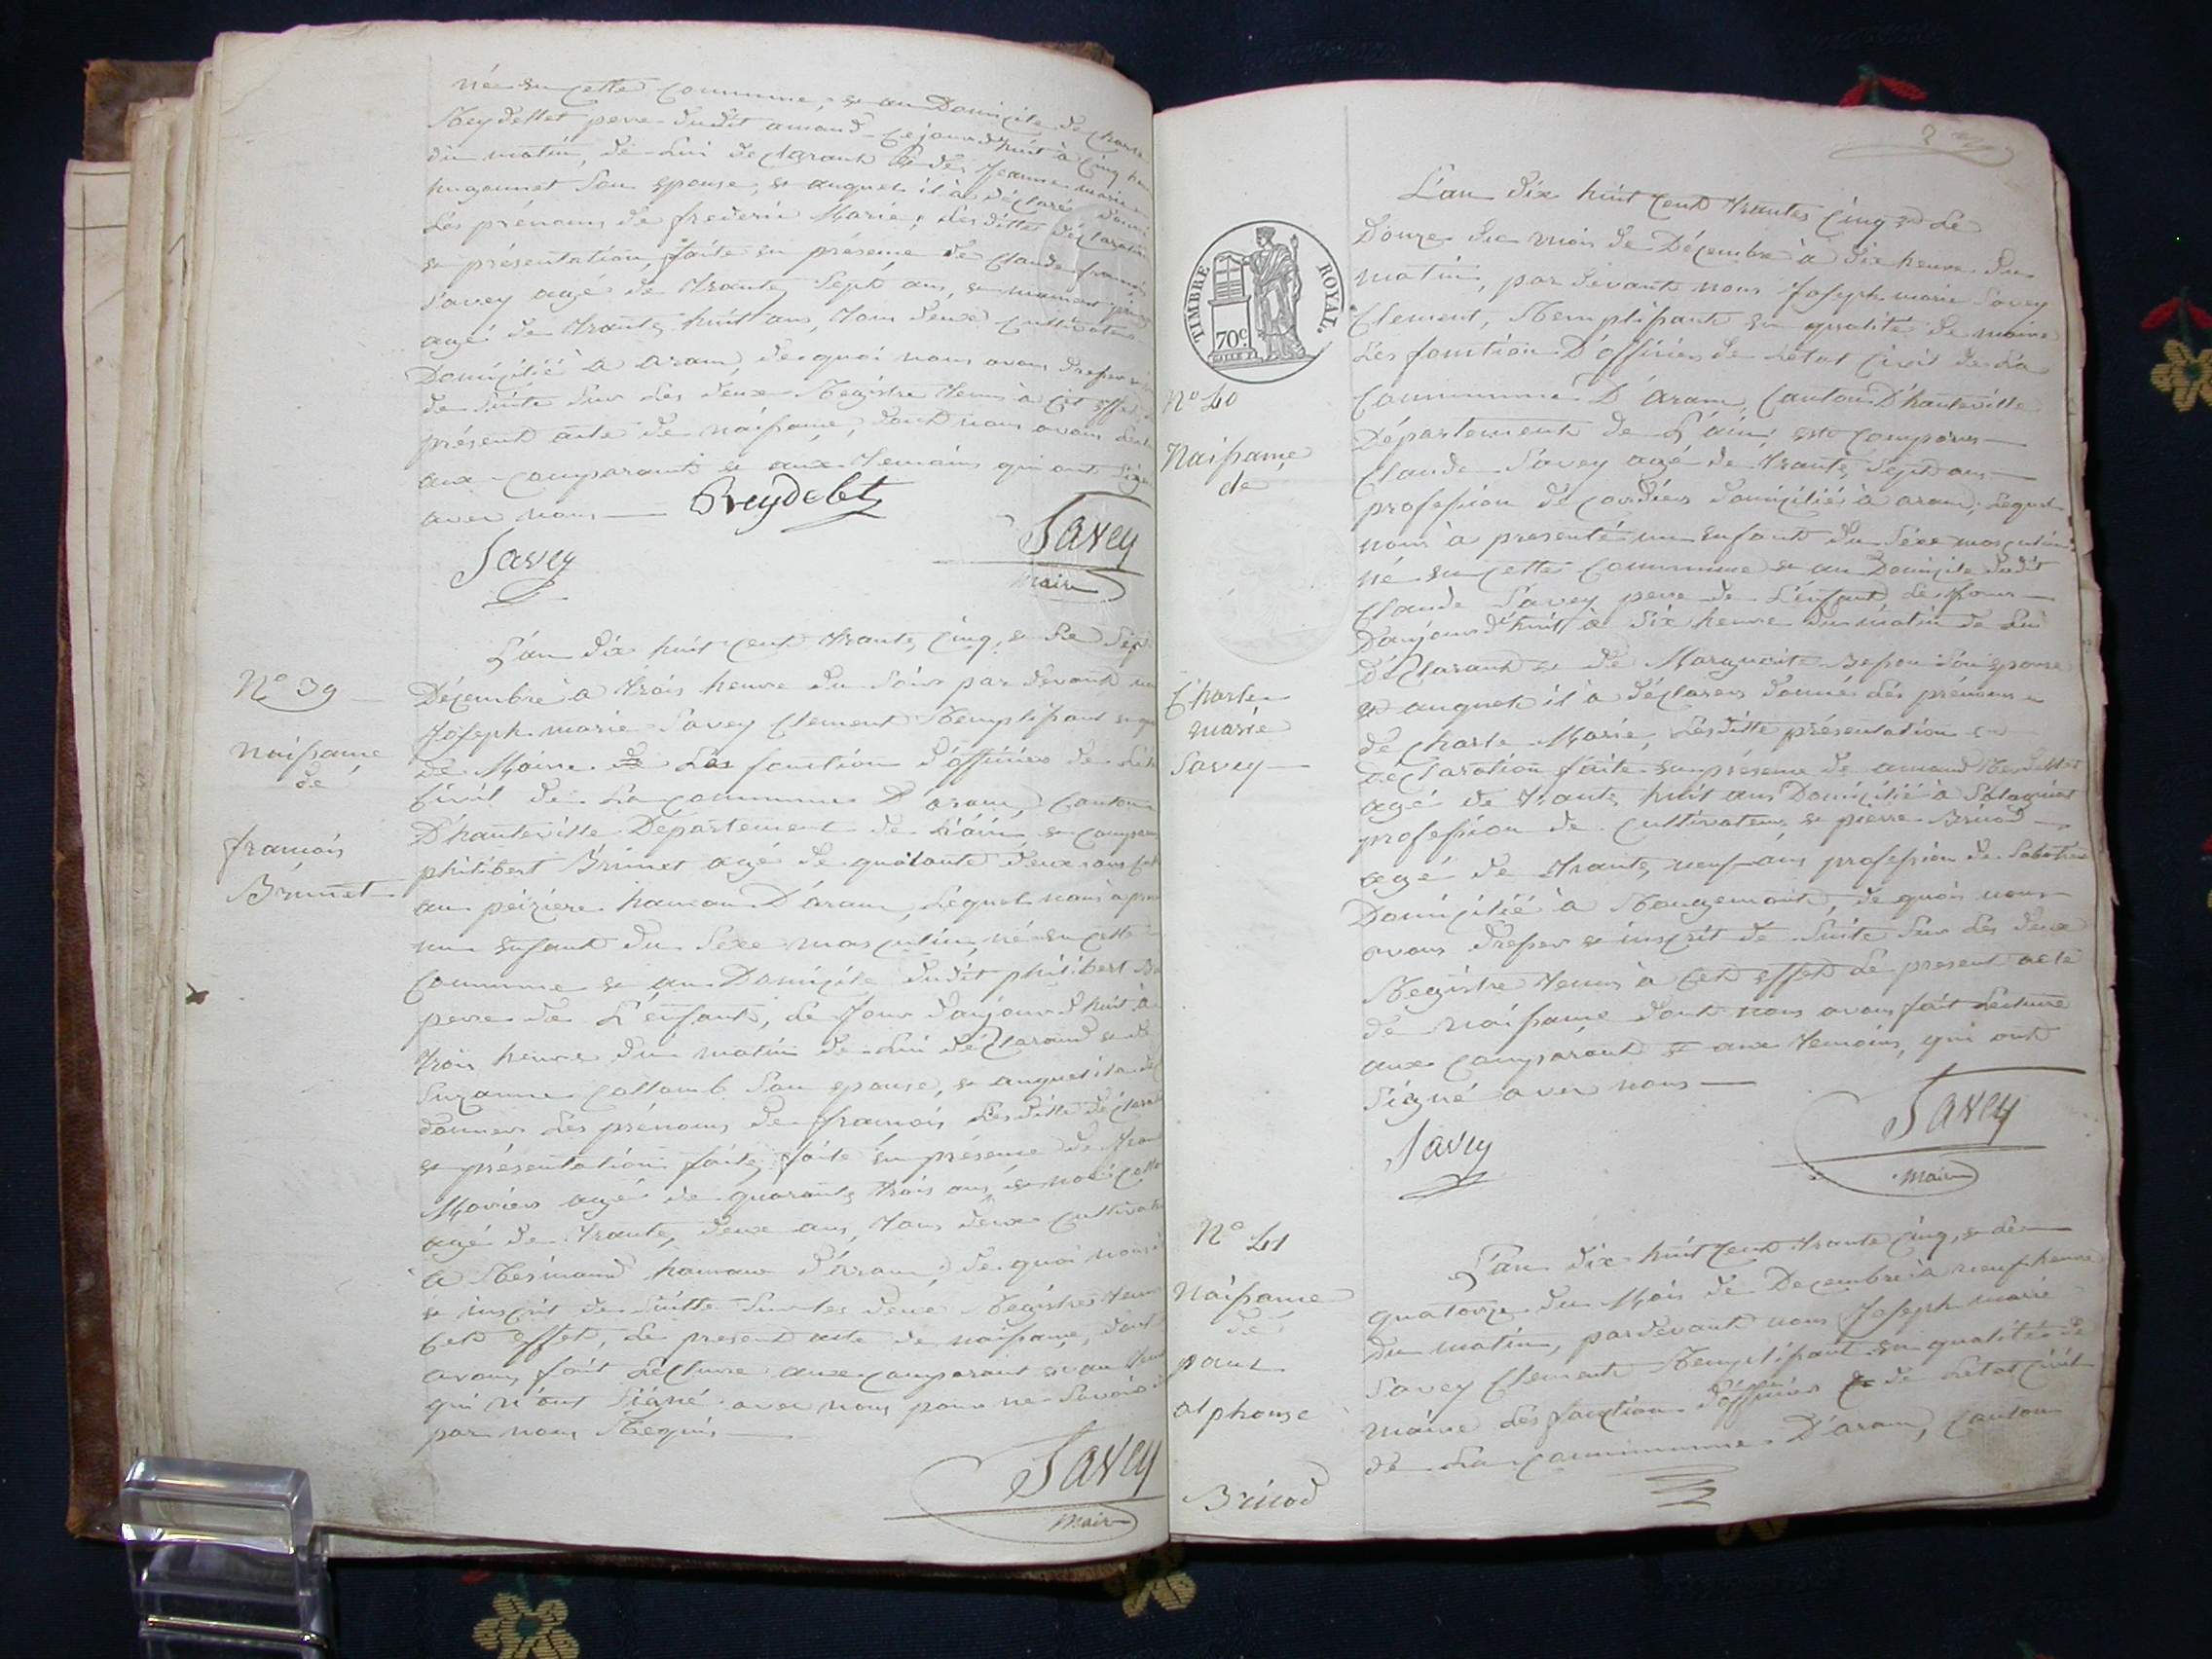 née en cette Commune, et au Domicile de
Reydellet pere dudit amand cejourd'huit à Cinq
du matin, de Lui declarant et de Jeanne marie
hugonnet Son epouse, et auquel il à déclaré
Les prénoms de frederic Marie; Lesdittes déclaration
et présentation, faite en présence de Claude françois
Savey agé de trante Sept ans, et
agé de trante huit ans, tous deux Cultivateur
Domicilié à aran, de quoi nous avons dresser
de Suite Sur Les deux Registre tenus à cet effet
présent acte de naissance, dont nous avons
aux Comparant et aux temoins qui ont Signé
avec nous Reydelet
Savey Savey
maire
L'an dix huit Cent trante Cinq, et Le Sept
N° 39
Décembre à trois heure du Soir par devant
Joseph marie Savey Clement Remplissant
naissance
de Maire de Les fonction d'officier de
de
Civil de La Commune D'aran, Canton
D'hauteville Département de L'ain
françois
philibert Brunet agé de quarante deux ans
Brunet
au hameau D'aran, Lequel nous à
un enfant du Sexe masculin, né en cette
Commune et au Domicile dudit philibert
pere de L'enfant, Le Jour d'aujourd'huit à
trois heure du matin de Lui déClarant et de
Suzanne Collomb Son epouse, et auquel il à
donner Les prénoms de françois Lesditte déclaration
et présentation faite, faite en présence de
agé de quarante trois ans, et
agé de trante deux ans, tous deux Cultivateur
à Resinand hameau d'aran, de quoi nous
et inscrit de Suitte Sur Les deux Registre tenus
Cet effet, Le present acte de naissance, dont
avons fait Lecture aux comparant et au
qui n'ont Signé avec nous pour ne Savoir
par nous Requis
Savey
maire
L'an dix huit Cent trantes Cinq et Le
Douze du mois de Décembre à dix heure du
matin, par devant nous Joseph marie Savey
TIMBRE ROYAL.
70c.
Clement, Remplissant en qualité de maire
Les fonction D'officier de L'état Civil de La
N° 40
Commune D'aran, Canton D'hauteville
Département de L'ain; est Comparus
Naissance
Claude Savey agé de trante Sept ans
de
profession de Cordier domicilié à aran, Lequel
nous à presenté un enfant du Sexe masculin,
né en cette Commune et au Domicile dudit
Claude Savey pere de L'enfant Le Jour
D'aujourd'huit à Six heure du matin de Lui
déClarant et de Marguerite Son epouse
Charle
et auquel il à déclarer donné Les prénoms
marie
de Charle Marie, Lesditte présentation et
Savey
declaration faite en présence de amand Reydellet
agé de trante huit ans Domicilié à
profession de Cultivateur et pierre Bricod
agé de trante neuf ans profession de Sabotier
Domicilié à Rougemont, de quoi nous
avons dresser et inscrit de Suite Sur Les deux
Registre tenus à Cet effet Le present acte
de naissance dont nous avons fait Lecture
aux comparant et aux temoins, qui ont
Signé avec nous
Savey Savey
maire
N° 41
L'an dix huit Cent trante Cinq, et Le
quatorze du Mois de Decembre à neuf heure
Naissance
du matin, pardevant nous Joseph marie
de
Savey Clement Remplissant en qualité de
paul
maire Les fonction d'officier de L'etat Civil
alphonse
de La Commune D'aran, Canton
Bricod